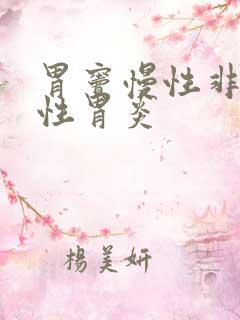 胃窦慢性非
性胃炎
楊美妍